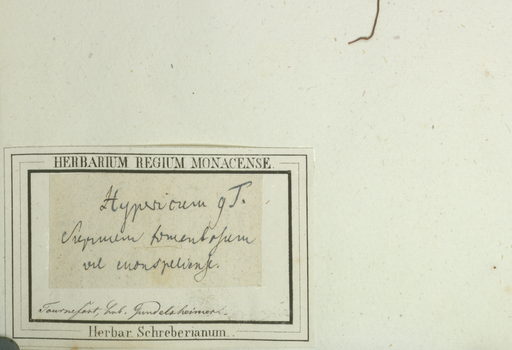 HERBARIUM REGIUM MONACENSE.
Hypericum 9 T.
supinum tomentosum
vel monspeliense.
Tournefort, hab. Gundelsheimer.
Herbar. Schreberianum.